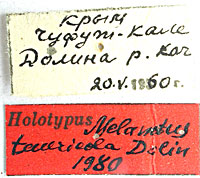 Крым
Чуфут-Кале
Долина р. Кач
20.V.1960г.
Holotypus Melanotus
tauricola Dolin
1980